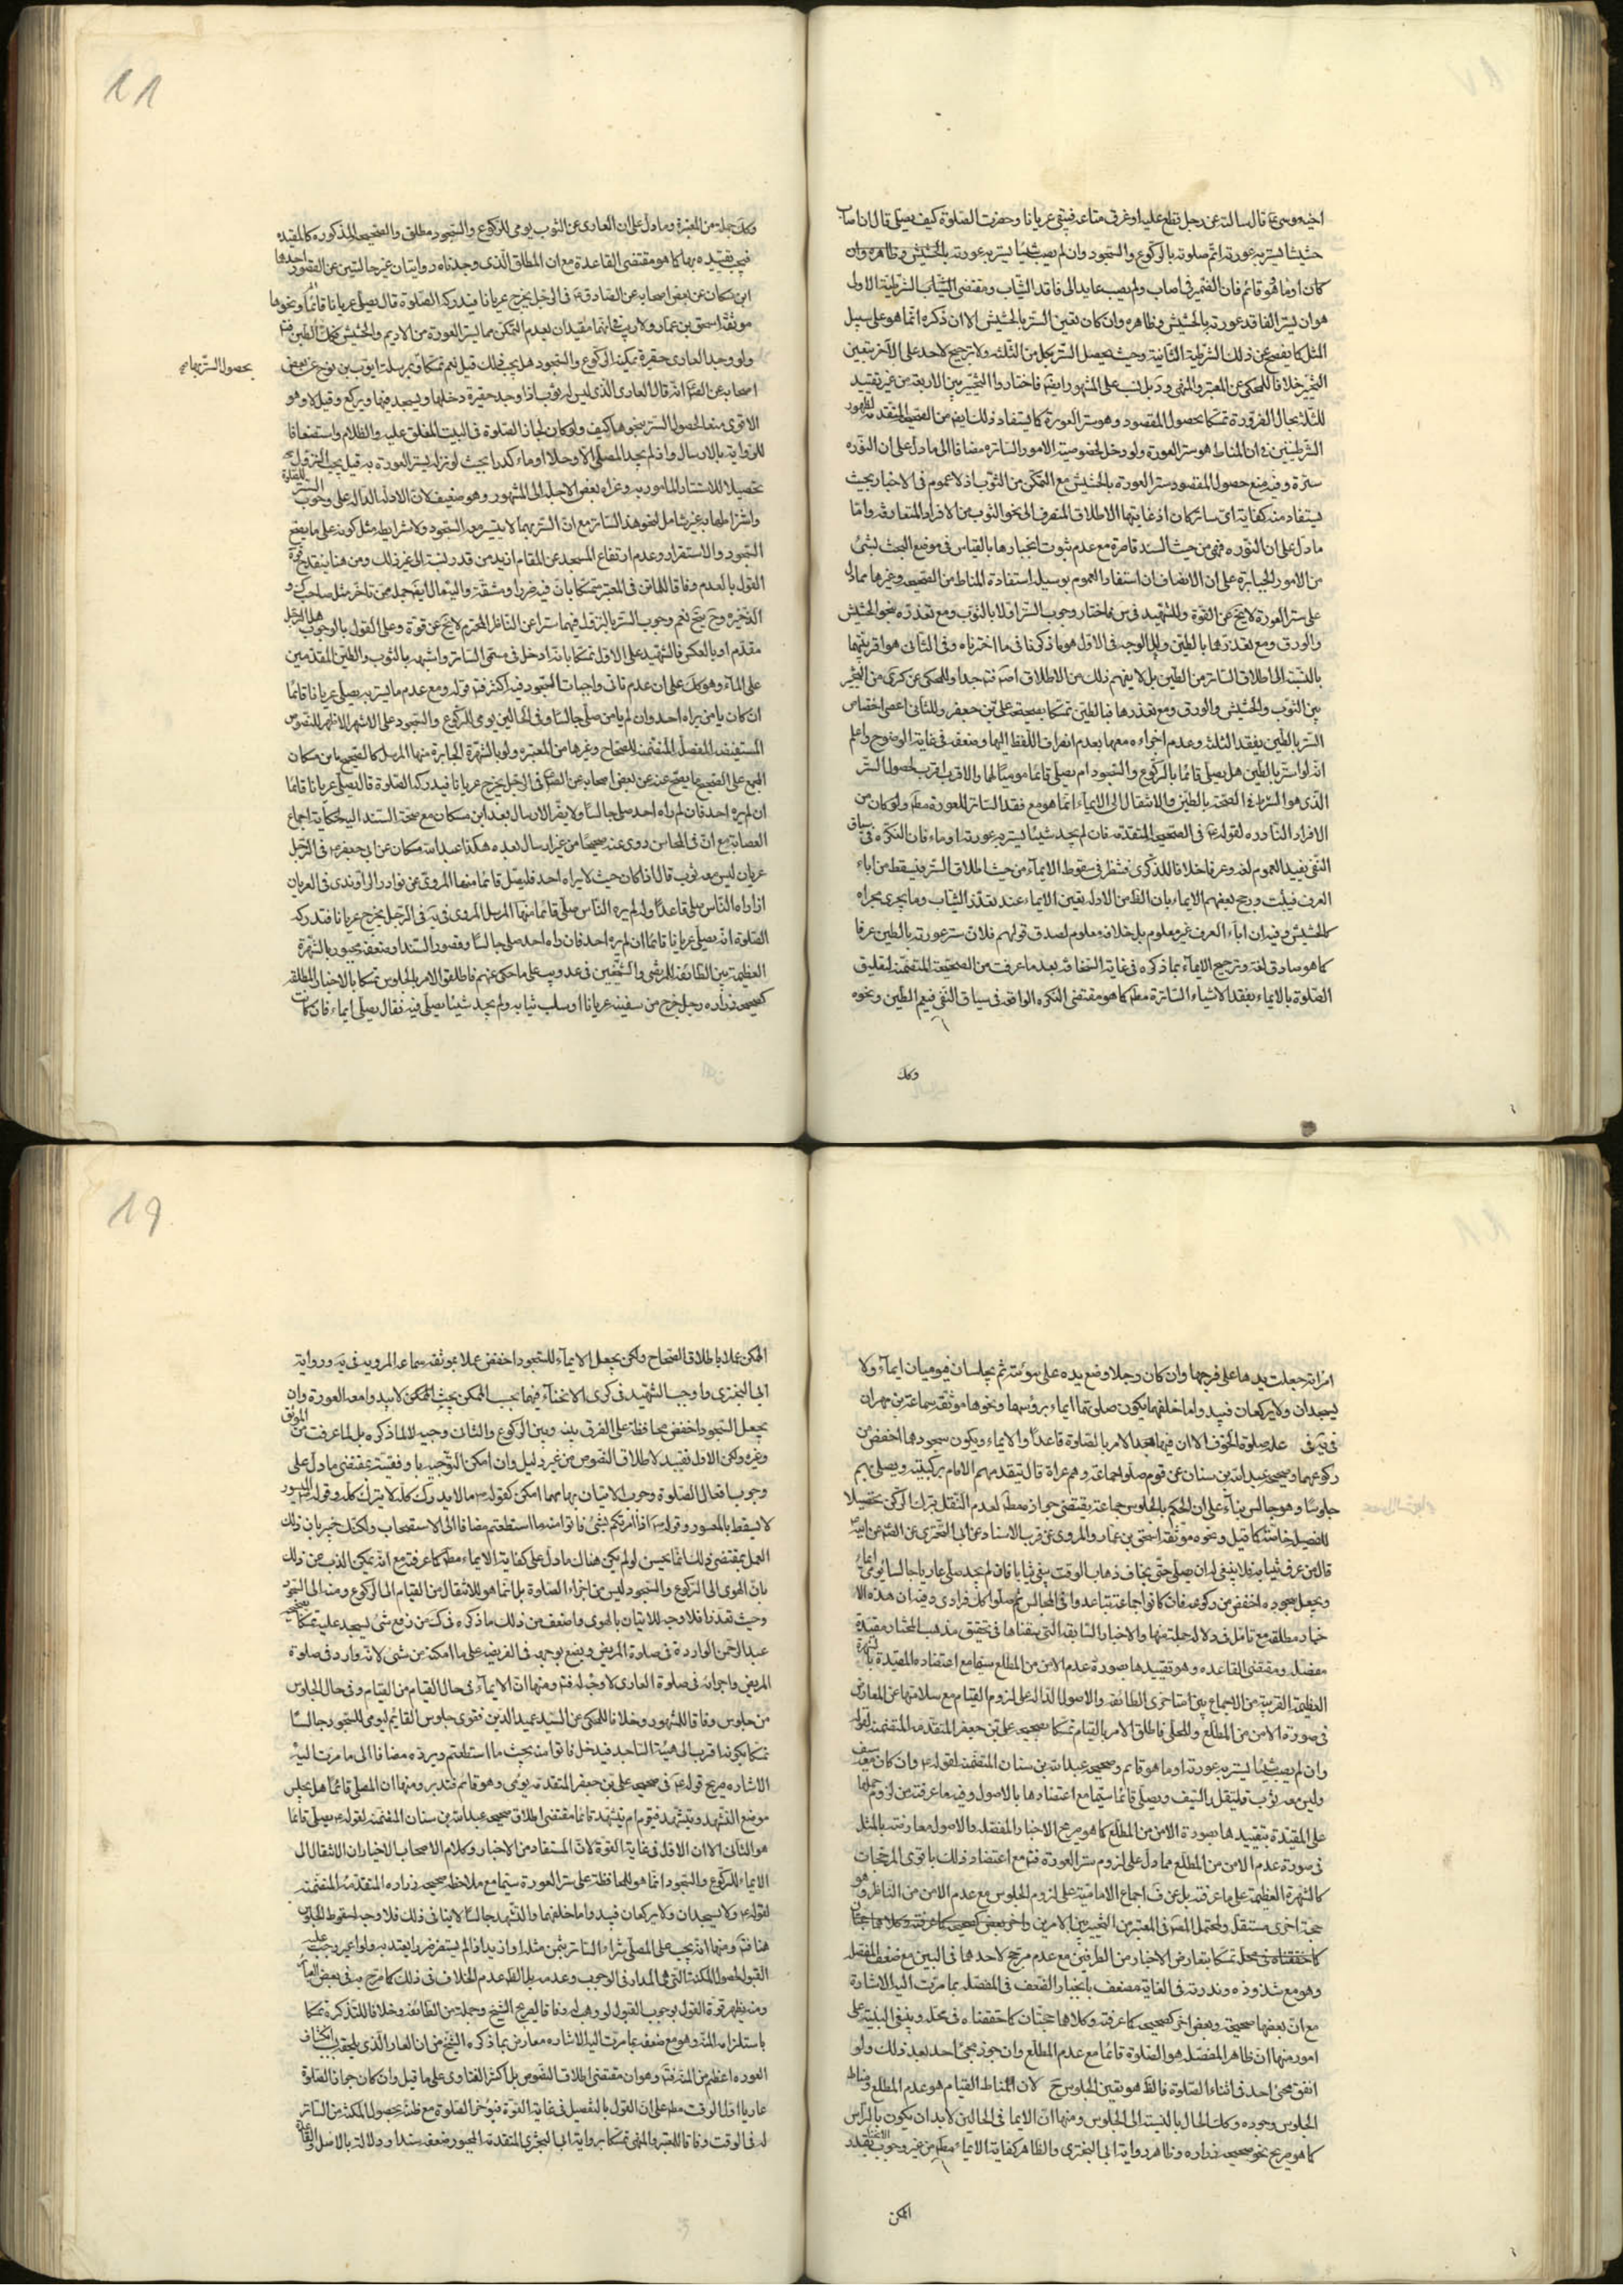 اخيه موسى قال سالته عن رجل قطع عليه او غرق متاعه فبقى عريانا وحضرت الصلوة كيف يصلى قال ان اصاب
حشيشا يستر به عورته اتم صلوته بالركوع والسجود وان لم يصب شيئا يستر به عورته بالحشيش وظاهره وان
كان اومأ وهو قائم فان الضمير فى اصاب ولم يصب عايد الى فاقد الثياب ومقتضى الشرطية الاولى
هو ان يستر الفاقد عورته بالحشيش وظاهره وان كان تعين الستر بالحشيش الا ان ذكره انما هو على سبيل
المثل كما يفصح عن ذلك الشرطية الثانية وحيث يحصل الستر بكل من الثلثة ولا ترجيح لاحد على الآخر يتعين
التخيير خلافا للمحكى عن المعتبر والمنتهى بل نسب على المشهور ايضا فاختاروا التخيير بين الاربعة من غير تقييد
للثلثة بحال الضرورة تمسكا بحصول المقصود وهو ستر العورة كما يستفاد ذلك ايضا من الصحيح المتقدم لظهور
الشرطيتين فى ان المناط هو ستر العورة ولو دخل لخصوصية الامور الساترة مضافا الى ما دل على ان النورة
سترة وفيه منع حصول المقصود ستر العورة بالحشيش مع التمكن من الثوب اذ لا عموم فى الاخبار بحيث
يستفاد منه كفاية اى ساتر كان اذ غايتها الاطلاق المنصرف الى نحو الثوب من الافراد المتعارفة واما
ما دل على ان النورة فهى من حيث السند قاصرة مع عدم ثبوت انجبارها بالقياس فى موضع البحث بشئ
من الامور الجابرة على ان الانصاف ان استفادة العموم بوسيلة استفادة المناط من الصحيحة وغيرها مما دل
على ستر العورة لا يخ عن القوة وللشهيد فى س فاختار وجوب الستر اولا بالثوب ومع تعذره بنحو الحشيش
والورق ومع تعذرها بالطين والوجه فى الاول هو ما ذكرنا فى ما اخترناه وفى الثانى هو اقربيتها
بالنسبة الى اطلاق الساتر من الطين بل لا يفهم ذلك من الاطلاق اصلا فتم جدا وللمحكى عن كرى من التخيير
بين الثوب والحشيش والورق ومع تعذرها فبالطين تمسكا بصحيحة على بن جعفر وللثانى اعنى اختصاص
الستر بالطين بفقد الثلثة وعدم اجزاءه معها بعدم انصراف اللفظ اليها وضعفه فى غاية الوضوح واعلم
انه لو استتر بالطين هل يصلى قائما بالركوع والسجود ام يصلى قائما موميا لها والاقرب اقرب لحصول الستر
الذى هو الشرط فى الصحة بالطين والانتقال الى الايماء انما هو مع فقد الساتر للعورة مطم ولو كان من
الافراد النادرة لقوله ع فى الصحيح المتقدمة فان لم يجد شيئا يستر به عورته اومأ فان النكرة فى سياق
النفى يفيد العموم لغة وعرفا خلافا للذكرى فنظر فى سقوط الايماء من حيث اطلاق الستر فيسقط من اباء
العرف فيثبت ورجح بعضهم الايماء بان الظ من الادلة تعين الايماء عند تعذر الثياب وما يجرى مجراه
كالحشيش وفيه ان اباء العرف غير معلوم بل خلافه معلوم لصدق قولهم فلان ستر عورته بالطين عرفا
كما هو صادق لغة وترجيح الايماء بما ذكره فى غاية السخافة بعد ما عرفت من الصحيحة المتضمنة لتعليق
الصلوة بالايماء بفقد الاشياء الساترة مطم كما هو مقتضى النكرة الواقعة فى سياق النفى فيعم الطين ونحوه
وكك
11
وكك جملة من المعتبرة وما دل على ان العارى عن الثوب يومى للركوع والسجود مطلق والصحيحة المذكورة كالمقيد
فيجب تقييده بها كما هو مقتضى القاعدة مع ان المطلق الذى وجدناه روايتان غير خاليتين عن القصور احدها
ابن مسكان عن بعض اصحابه عن الصادق ع فى الرجل يخرج عريانا فيدركه الصلوة قال يصلى عريانا قائما ونحوها
موثقة اسحق بن عمار ولا ريب فى انهما مقيدان بعدم التمكن مما يستر العورة من الاديم والحشيش فكك الطين فتم
ولو وجد العارى حفيرة يمكنه الركوع والسجود هل يجب ذلك قيل نعم تمسكا بمرسلة ايوب بن نوح عن بعض
بحصول الستر بها
اصحابه عن الصه انه قال العارى الذى ليس له ثوب اذا وجد حفيرة دخلها ويسجد فيها ويركع وقيل لا وهو
الاقوى منعا لحصول الستر بنحوها كيف ولو كان لجاز الصلوة فى البيت المغلق عليه والظلام واستضعافا
للرواية بالارسال واذا لم يجد المصلى الا وحلا او ماء كدرا بحيث لو نزله يستر العورة به قيل يجب النزول
تحصيلا للاستتار المامور به وعزاه بعض الاجلة الى المشهور وهو ضعيف لان الادلة الدالة على وجوب الستر
واشتراطها به غير شامل لنحو هذا الساتر مع ان الستر بهما لا يتيسر معه السجود ولا شرايطه مثل كونه على ما يصح
السجود والاستقرار وعدم ارتفاع المسجد عن المقام ازيد من قدر لبنة الى غير ذلك ومن هنا ينقدح قوة
القول بالعدم وفاقا للفاضل فى المعتبر تمسكا بان فيه ضررا ومشقة واليه مال ايضا جملة ممن تاخر مثل صاحب ك و
الذخيرة وح يتجه نعم وجوب الستر بالنزول فيهما سترا عن الناظر المحترم لا يخ عن قوة وعلى القول بالوجوب هل الوحل
مقدم او بالعكس فالشهيد على الاول تمسكا بانه ادخل فى مسمى الساتر واشبه بالثوب والطين المقدمين
على الماء وهو كك على ان عدم تاتى واجبات السجود فيه اكثر فتم قوله ومع عدم ما يستر به يصلى عريانا قائما
ان كان يامن يراه احد وان لم يامن صلى جالسا وفى الحالين يومى للركوع والسجود على الاشهر الاظهر للنصوص
المستفيضة المفصلة المنضمنة للصحاح وغيرها من المعتبرة ولو بالشهرة الجابرة منها المرسل كالصحيح بابن مسكان
المجمع على تصحيح ما يصح عنه عن بعض اصحابه عن الصه فى الرجل يخرج عريانا فيدركه الصلوة قال يصلى عريانا قائما
ان لم يره احد فان راه احد صلى جالسا ولا يضر الارسال بعد ابن مسكان مع صحة السند اليه لحكاية اجماع
العصابة مع ان فى المحاسن روى عنه صحيحا من غير ارسال بعده هكذا عبد الله مسكان عن ابى جعفر ع فى الرجل
عريان ليس معه ثوب قال اذا كان حيث لا يراه احد فليصل قائما منها المروى عن نوادر الراوندى فى العريان
اذا راه الناس صلى قاعدا ولو لم يره الناس صلى قائما منها المرسل المروى فى يه فى الرجل يخرج عريانا فتدركه
الصلوة انه يصلى عريانا قائما ان لم يره احد فان راه احد صلى جالسا وقصور السند او ضعفه مجبور بالشهرة
العظيمة بين الطائفة للمرتضى والشيخين فى عد ويب على ما حكى عنهم فاطلقوا الامر بالجلوس تمسكا بالاخبار المطلقة
كصحيحة زراره رجل خرج من سفينة عريانا او سلب ثيابه ولم يجد شيئا يصلى فيه فقال يصلى ايماء فان كانت
امراة جعلت يدها على فرجها وان كان رجلا وضع يده على سوئته ثم يجلسان فيوميان ايماء ولا
يسجدان ولا يركعان فيبدو ما خلفهما يكون صلوتهما ايماء برؤسهما ونحوها موثقة سماعة بن مهران
علة صلوة الخوف الا ان فيهما الامر بالصلوة قاعدا والايماء ويكون سجودهما اخفض من
ركوعهما وصحيحة عبد الله بن سنان عن قوم صلوا جماعة وهم عراة قال يتقدمهم الامام بركبتيه ويصلى بهم
جلوسا وهو جالس بناء على ان الحكم بالجلوس جماعة يقتضى جوازه مطم لعدم التعقل بترك الركن تحصيلا
للفضيلة خاصة كما قيل ونحوه موثقة اسحق بن عمار والمروى عن قرب الاسناد عن ابى البخترى عن الصه عن ابيه
قال من غرق ثيابه فلا ينبغى له ان يصلى حتى يخاف ذهاب الوقت يبتغى ثيابا فان لم يجد صلى عاريا جالسا يومى ايماء
ويجعل سجوده اخفض من ركوعه فان كانوا جماعة تباعدوا فى المجالس ثم صلوا كل فرادى وفيه ان هذه الا
خبار مطلقة مع تامل فى دلالة جملة منها والاخبار السابقة التى سقناها فى تحقيق مذهب المختار مقيدة
مفصلة ومقتضى القاعدة وهو تقييدها بصورة عدم الامن من المطلع سيما مع اعتضاده المقيدة بالشهرة
العظيمة القريبة من الاجماع بين متاخرى الطائفة والاصول الدالة على لزوم القيام مع سلامتها عن المعارض
فى صورة الامن من المطلع وللحلى فاطلق الامر بالقيام تمسكا بصحيحة على بن جعفر المتقدمة المتضمنة لقوله
وان لم يصب شيئا يستر به عورته اومأ وهو قائم وصحيحة عبد الله بن سنان المتضمنة لقوله ع وان كان معه سيف
وليس معه ثوب فليتقلد السيف ويصلى قائما سيما مع اعتضادها بالاصول وفيه ما عرفته من لزوم حملها
على المقيدة بتقييدها بصورة الامن من المطلع كما هو صريح الاخبار المفصلة والاصول معارضة بالمثل
فى صورة عدم الامن من المطلع مما دل على لزوم ستر العورة فتم مع اعتضاد ذلك باقوى المرجحات
كالشهرة العظيمة على ما عرفته بل عن ف اجماع الامامية على لزوم الجلوس مع عدم الامن من الناظر وهو
حجة اخرى مستقلة ولمحتمل المص فى المعتبر من التخيير بين الامرين
كما حققناه فى محله تمسكا بتعارض الاخبار من الطرفين مع عدم مرجح لاحدهما فى البين مع ضعف المفصلة
وهو مع شذوذه وندرته فى الغاية مضعف بانجبار الضعف فى المفصلة بما مرت اليه الاشارة
مع ان بعضها صحيحة وبعض اخر كصحيحة كما عرفته وكلاها حجتان كما حققناه فى محله وينبغى التنبيه على
امور منها ان ظاهر المفصلة هو الصلوة قائما مع عدم المطلع وان جوز مجئ احد بعد ذلك ولو
اتفق مجئ احد فى اثناء الصلوة فالظ هو تعين الجلوس ح لان المناط القيام هو عدم المطلع ومناط
الجلوس وجوده وكك الحال بالنسبة الى الجلوس ومنها ان الايما فى الحالين لابد ان يكون بالراس
كما هو صريح نحو صحيحة زراره وظاهر رواية ابى البخترى والظاهر كفاية الايماء مطم من غير وجوب الانحناء بقدر
الممكن
19
الممكن عملا باطلاق الصحاح ولكن يجعل الايماء للسجود اخفض عملا بموثقة سماعة المروية فى يه ورواية
ابى البخترى واوجب الشهيد فى كرى الانحناء فيهما بحسب الممكن بحيث الممكن لا يبدو معه العورة وان
يجعل السجود اخفض محافظة على الفرق بينه وبين الركوع والثانى وجيه لا لما ذكره بل لما عرفت من الموثق
وغيره ولكن الاول تقييد لاطلاق النصوص من غير دليل وان امكن التوجيه با وفقيته بمقتضى ما دل على
وجوب افعال الصلوة وجوب الاتيان بها مهما امكن كقوله ع ما لا يدرك كله لا يترك كله وقوله ع الميسور
لا يسقط بالمعسور وقوله ع اذا امرتكم بشئ فاتوا منه ما استطعتم مضافا الى الاستصحاب ولكنك خبير بان ذلك
العمل بمقتضى ذلك انما يحسن لو لم يكن هناك ما دل على كفاية الايماء مطم كما عرفته مع انه يمكن الذب عن ذلك
بان الهوى الى الركوع والسجود ليس من اجزاء الصلوة بل انما هو للانتقال من القيام الى الركوع ومنه الى السجود
وحيث تعذرا فلا وجه للاتيان بالهوى واضعف من ذلك ما ذكره فى ك من رفع شئ ليسجد عليه تمسكا بصحيحة
عبد الرحمن الواردة فى صلوة المريض ويضع بوجهه فى الفريضة على ما امكنه من شئ لانه وارد فى صلوة
المريض واجرائه فى صلوة العارى لا وجه له فتم ومنها ان الايماء فى حال القيام من القيام وفى حال الجلوس
من جلوس وفاقا للمشهور وخلافا للمحكى عن السيد عميد الدين فقوى جلوس القائم ليومى للسجود جالسا
تمسكا بكونه اقرب الى هيئة الساجد فيدخل فاتوا منه بحيث ما استطعتم ويرده مضافا الى ما مرت اليه
الاشارة صريح قوله ع فى صحيحة على بن جعفر المتقدمة يومى وهو قائم فتدبر ومنها ان المصلى قائما هل يجلس
موضع التشهد ويتشهد فيقوم ام يتشهد قائما مقتضى اطلاق صحيحة عبد الله بن سنان المتضمنة لقوله ع يصلى قائما
هو الثانى الا ان الاول فى غاية القوة لان المستفاد من الاخبار وكلام الاصحاب الاخيار ان الانتقال الى
الايماء للركوع والسجود انما هو للمحافظة على ستر العورة سيما مع ملاحظة صحيحة زراره المتقدمة المتضمنة
لقوله ع ولا يسجدان ولا يركعان فيبدو ما خلفهما والتشهد جالسا لا ينافى ذلك فلا وجه لسقوط الجلوس
هنا فتم ومنها انه يجب على المصلى شراء الساتر بثمن مثله او ازيد اذا لم يستضر ضررا يعتد به ولو اعير وجب عليه
القبول لحصول المكنة التى هى المدار فى الوجوب وعدمه بل الظ عدم الخلاف فى ذلك كما صرح به فى بعض العبائر
ومنه يظهر قوة القول بوجوب القبول لو وهب له وفاقا لصريح الشيخ وجملة من الطائفة وخلافا للتذكرة تمسكا
باستلزامه المنة وهو مع ضعفه بما مرت اليه الاشارة معارض بما ذكره الشيخ من ان العار الذى يلحقه بانكشاف
العورة اعظم من المنة فتم وهو ان مقتضى اطلاق النصوص بل اكثر الفتاوى على ما قيل وان كان جواز الصلوة
عاريا اول الوقت مطم على ان القول بالتفصيل فى غاية القوة فيؤخر الصلوة مع ظنه بحصول المكنة من الساتر
له فى الوقت وفاقا للمعتبر والمنتهى تمسكا برواية ابى البخترى المتقدمة المجبور ضعفه سندا ودلالة بالاصل والقاعدة